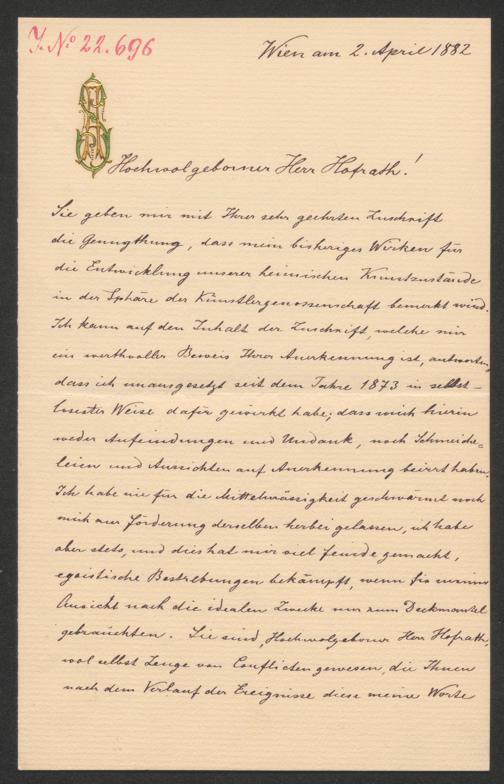 J. No 22.696
Wien am 2. April 1882
Hochwolgeborner Herr Hofrath!
Sie geben mir mit Ihrer sehr geehrten Zuschrift
die Genugthung, dass mein bisheriges Wirken für
die Entwicklung unserer heimischen Kunstzustände
in der Sphäre der Künstlergenossenschaft bemerkt wird.
Ich kann auf den Inhalt der Zuschrift, welche mir
ein werthvoller Beweis Ihrer Anerkennung ist, antworten,
dass ich unausgesetzt seit dem Jahre 1873 in selbst-
losester Weise dafür gewirkt habe; dass mich hierin
weder Anfeindungen und Undank, noch Schmeiche=
leien und Aussichten auf Anerkennung beirrt haben.
Ich habe nie für die Mittelmässigkeit geschwärmt noch
mich zur Förderung derselben herbei gelassen, ich habe
aber stets, und dies hat mir viel Feinde gemacht,
egoistische Bestrebungen bekämpft, wenn sie meiner
Ansicht nach die idealen Zwecke nur zum Deckmantel
gebrauchten. Sie sind, Hochwolgeborner Herr Hofrath,
wol selbst Zeuge von Conflicten gewesen, die Ihnen
nach dem Verlauf der Ereignisse diese meine Worte